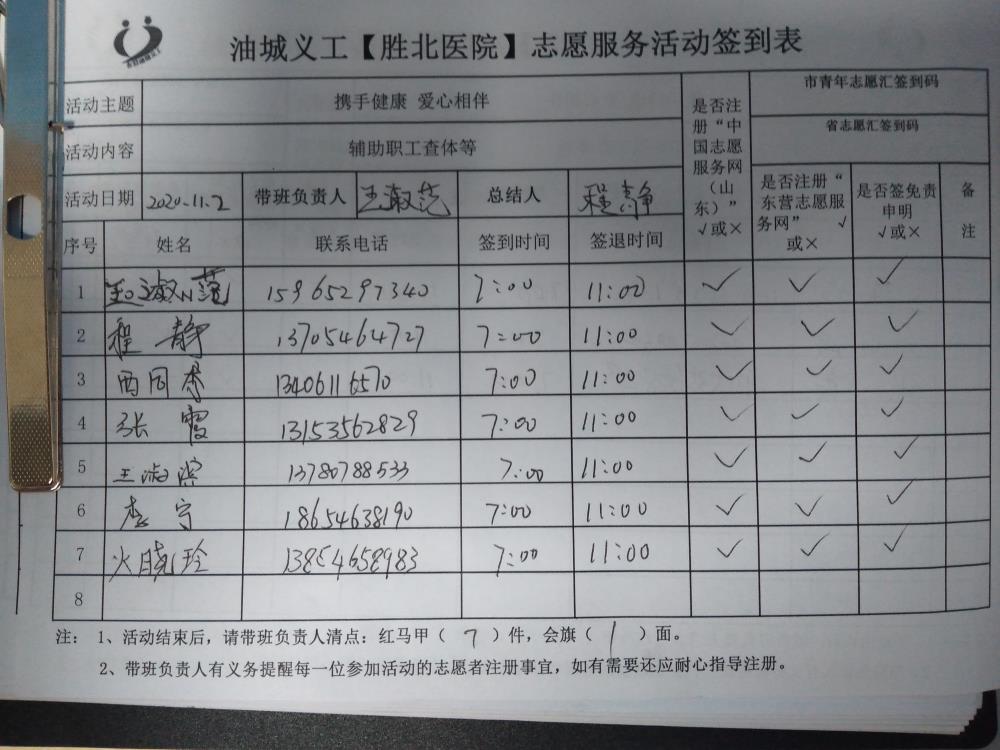 油城义工【胜北医院】志愿服务活动签到表
活动主题 携手健康 爱心相伴 是否注册“中国志愿服务网(山东)”√或× 市青年志愿汇签到码
活动内容 辅助职工查体等 省志愿汇签到码
活动日期 2020.11.2 带班负责人 王淑范 总结人 程静 是否注册“东营志愿服务网”√或× 是否签免责申明√或× 备注
序号 姓名 联系电话 签到时间 签退时间
1 王淑范 15965297340 7:00 11:00 ✓ ✓ ✓
2 程静 13705464727 7:00 11:00 ✓ ✓ ✓
3 13406116570 7:00 11:00 ✓ ✓ ✓
4 张霞 13153562829 7:00 11:00 ✓ ✓ ✓
5 王淑滨 13780788533 7:00 11:00 ✓ ✓ ✓
6 李宁 18654638190 7:00 11:00 ✓ ✓ ✓
7 火晓玲 13854658983 7:00 11:00 ✓ ✓ ✓
8
注: 1、活动结束后,请带班负责人清点:红马甲( 7 )件,会旗( 1 )面。
2、带班负责人有义务提醒每一位参加活动的志愿者注册事宜,如有需要还应耐心指导注册。